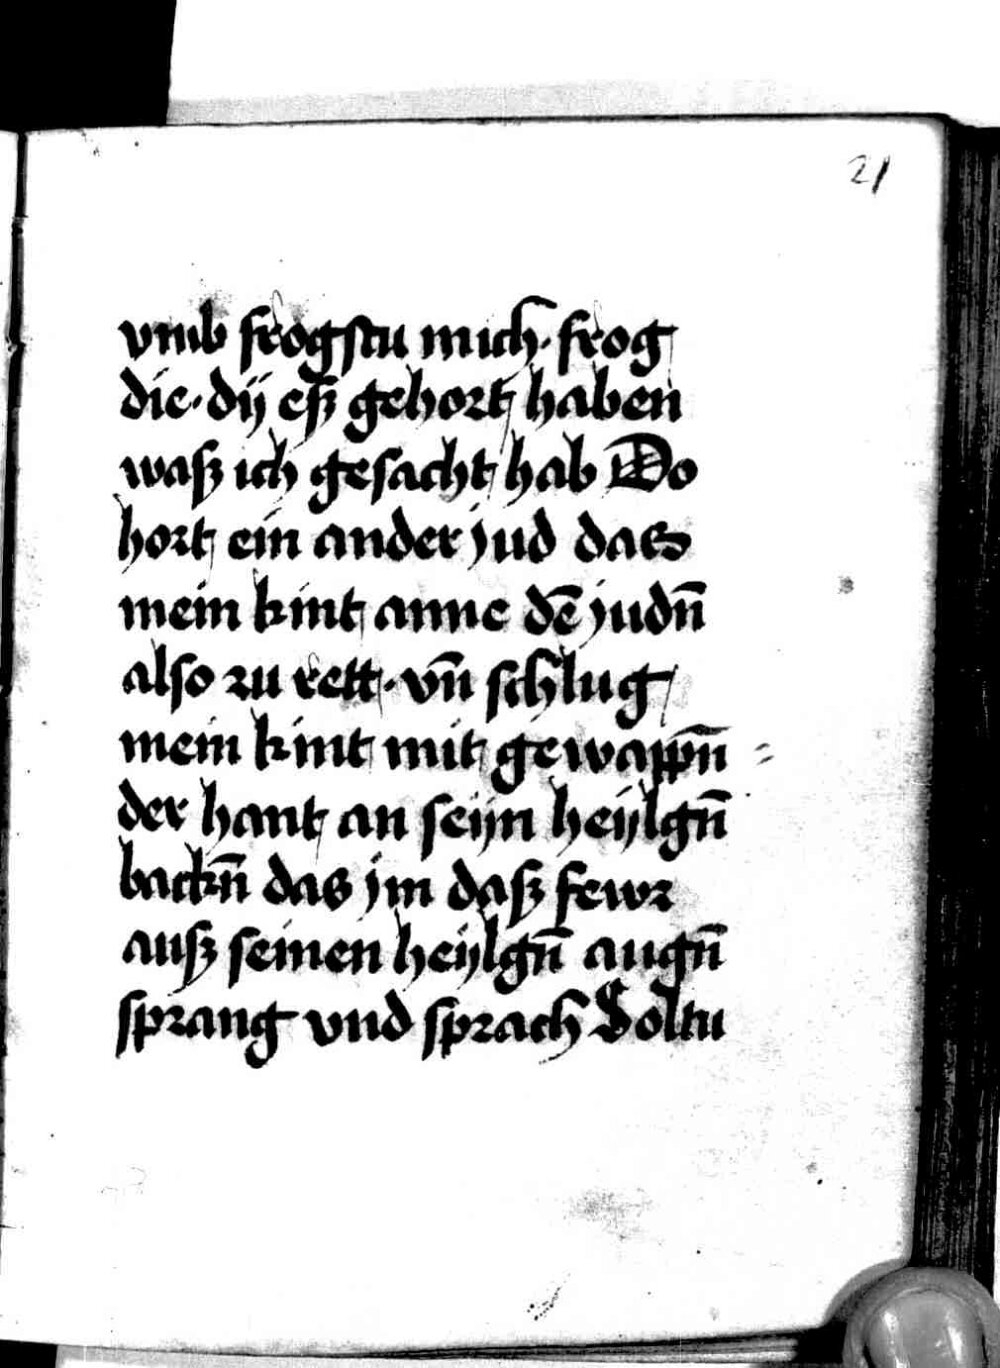 21
vmb frogstu mich · frog
die · dij eß gehort haben
waß ich gesacht hab Do
hort ein ander jud das
mein kint anne dē judn̄
also zu rett · vn̄ schlug
mein kint mit gewappn̄
der hant an seijn heijlgn̄
backn̄ das jm daß fewr
auß seinen heijlgn̄ augn̄
sprang vnd sprach Soltu